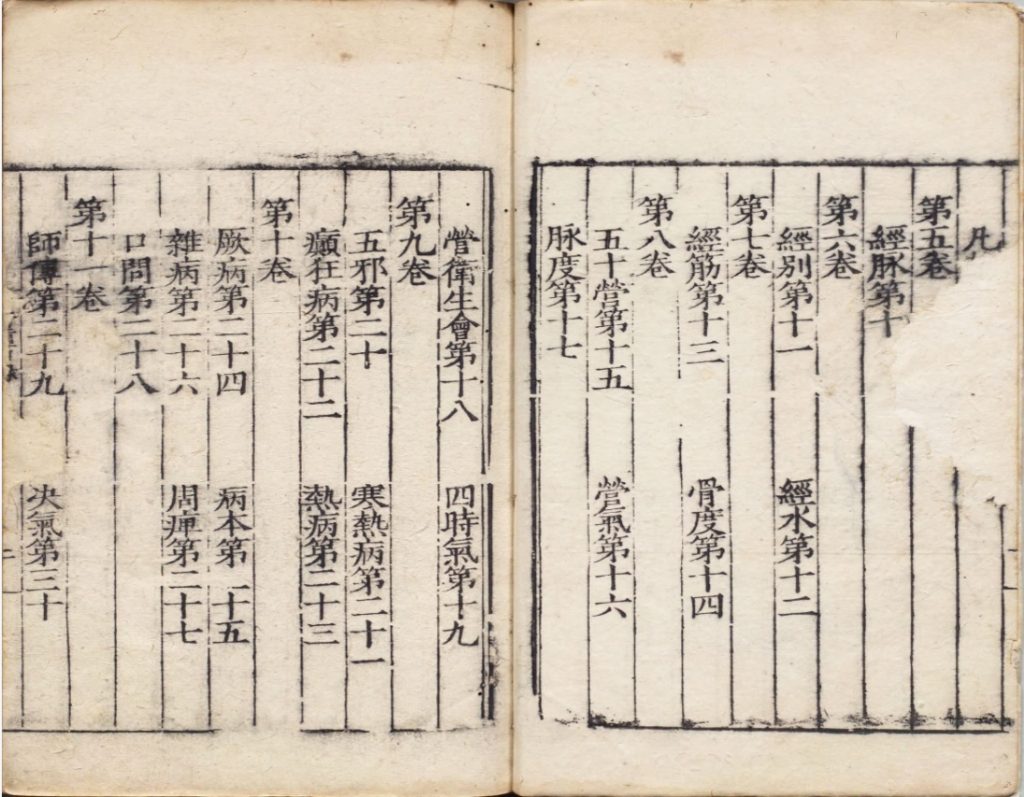 第五卷
經脉第十
第六卷
經別第十一　經水第十二
第七卷
經筋第十三　骨度第十四
第八卷
五十營第十五　營氣第十六
脉度第十七
營衛生會第十八　四時氣第十九
第九卷
五邪第二十　寒熱病第二十一
癲狂病第二十二　熱病第二十三
第十卷
厥病第二十四　病本第二十五
雜病第二十六　周痺第二十七
口問第二十八
第十一卷
師傳第二十九　决氣第三十